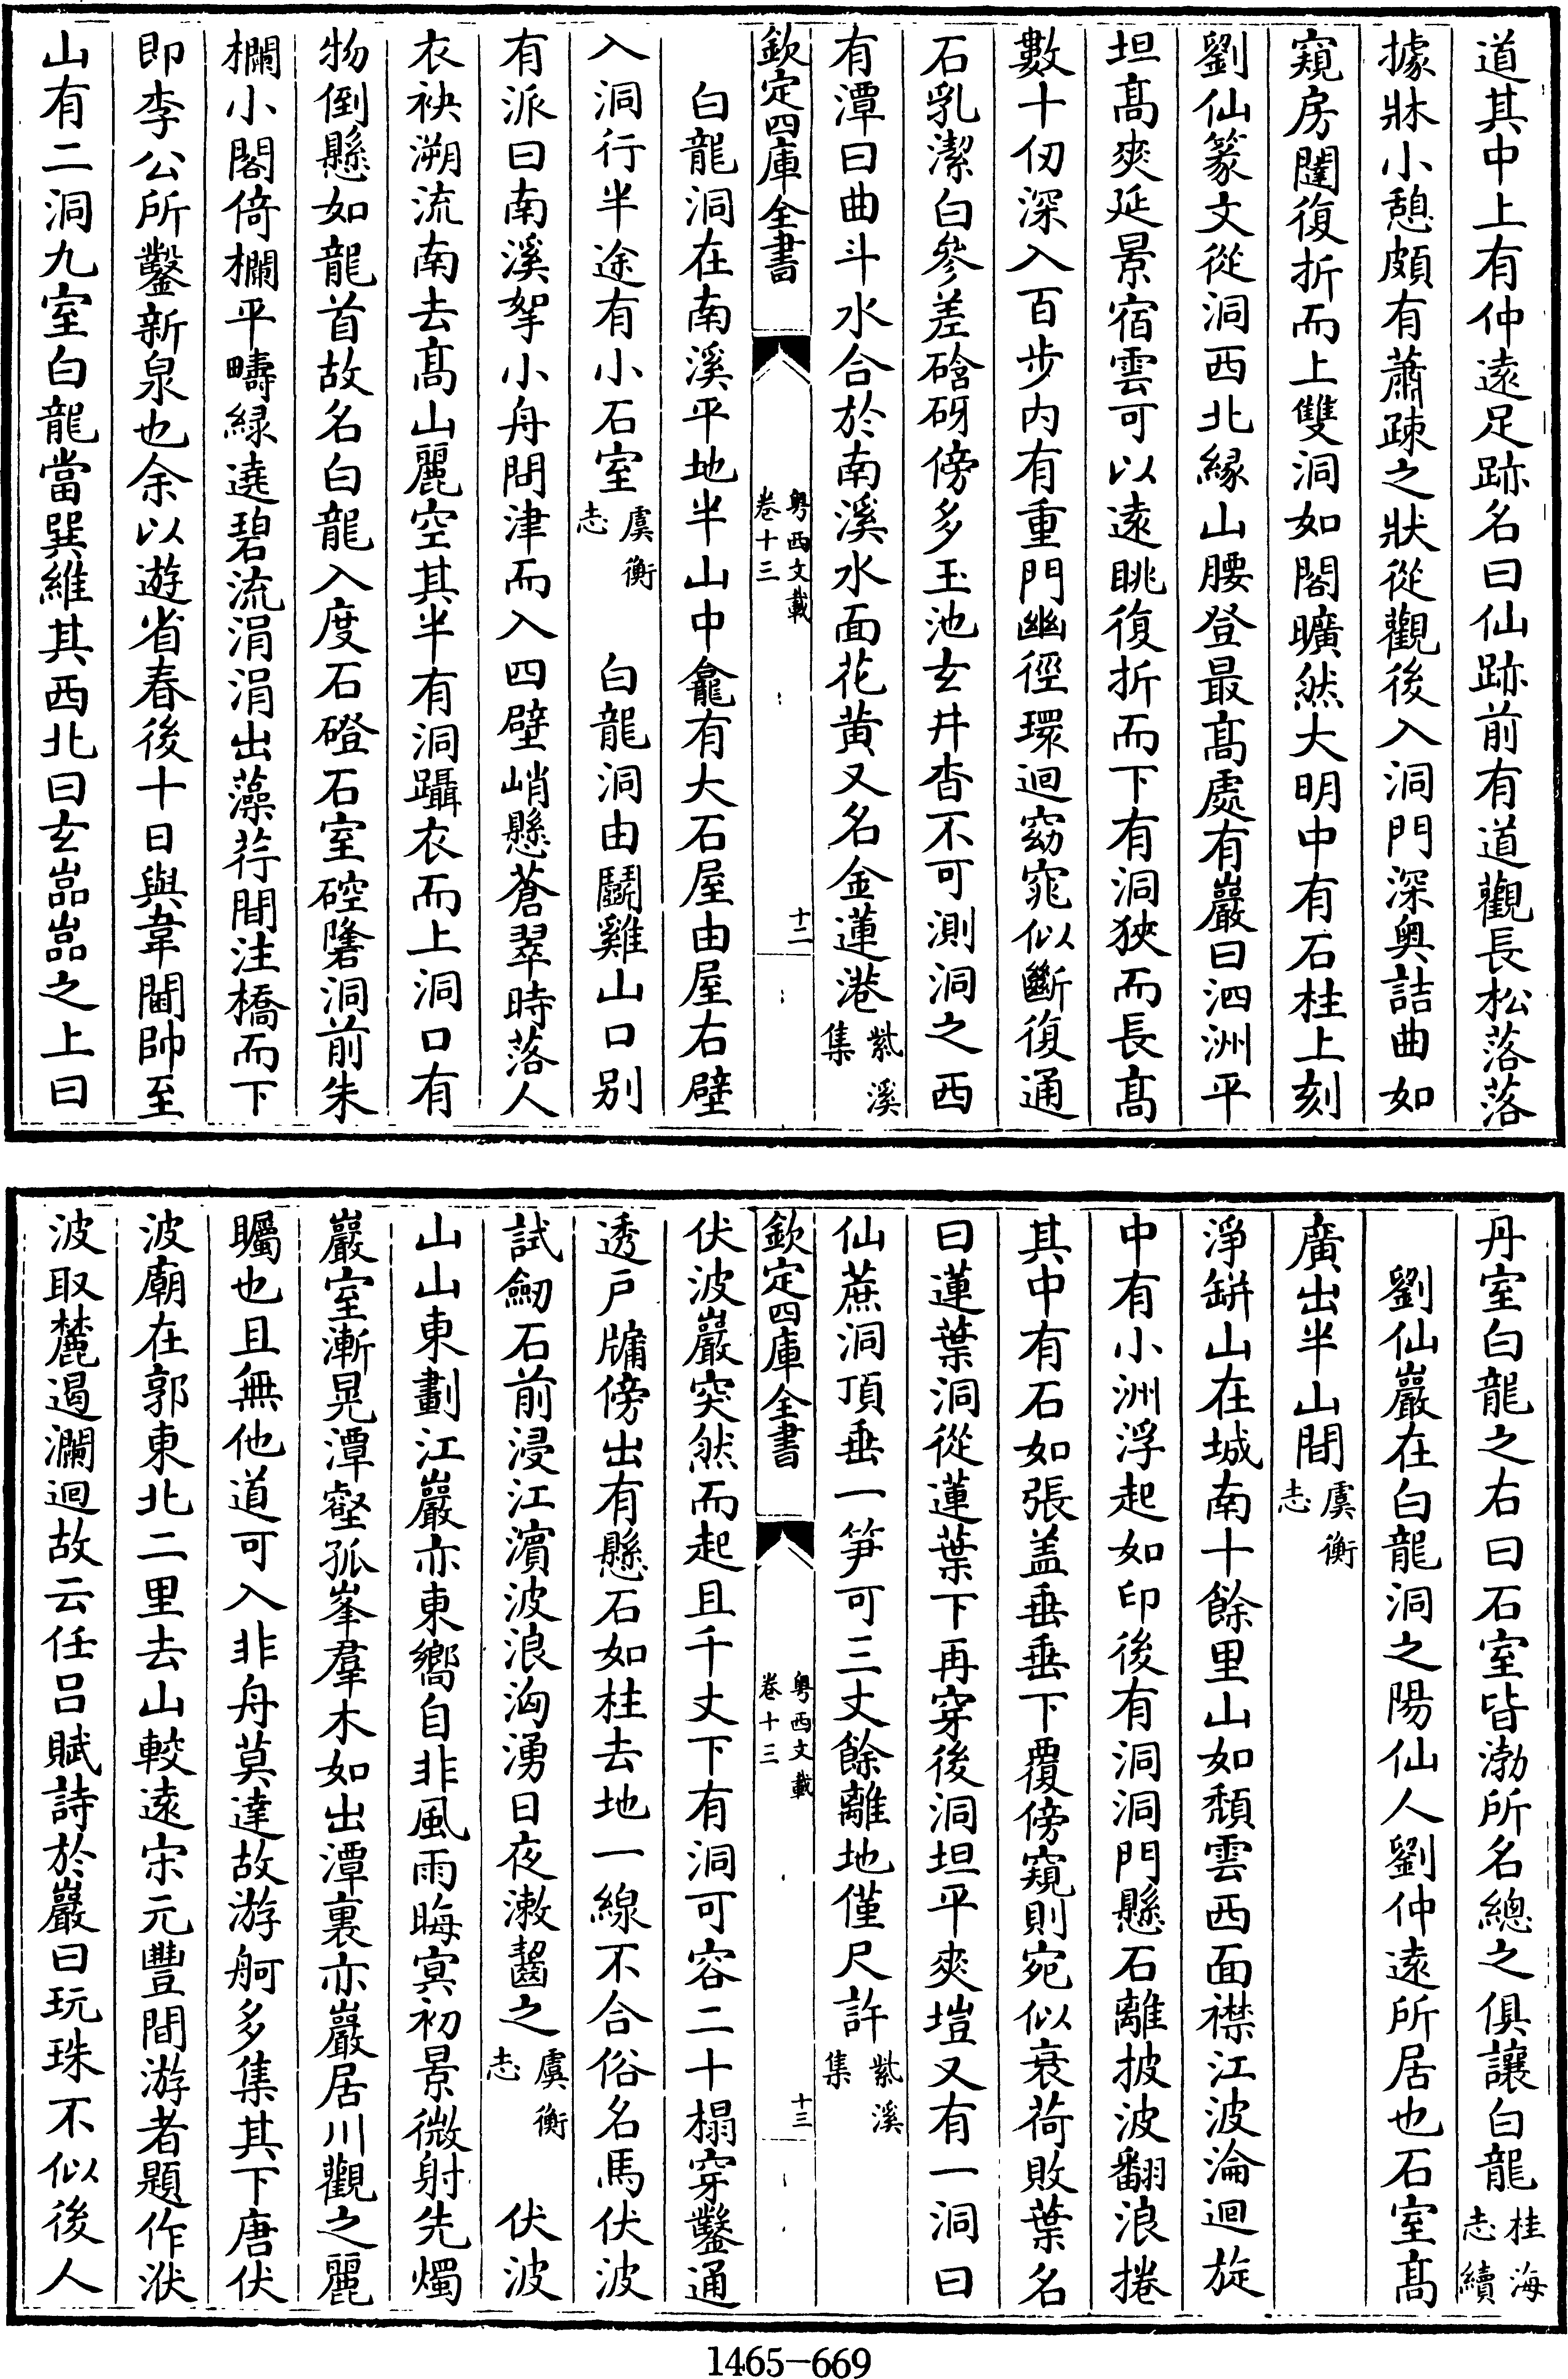 道其中上有仲遠足跡名曰仙跡前有道觀長松落落
據牀小憩頗有蕭疎之狀從觀後入洞門深奥詰曲如
窺房闥復折而上雙洞如閣曠然大明中有石柱上刻
劉仙篆文從洞西北緣山腰登最高處有巖曰泗洲平
坦髙爽延景宿雲可以遠眺復折而下有洞狹而長髙
數十仞深入百步内有重門幽徑環迴窈窕似斷復通
石乳潔白參差硆砑傍多玉池玄井杳不可測洞之西
有潭曰曲斗水合於南溪水面花黄又名金蓮港紫溪集
欽定四庫全書 粤西文載 卷十三 十二
白龍洞在南溪平地半山中龕有大石屋由屋右壁
入洞行半途有小石室虞衡志 白龍洞由鬭雞山口别
有派曰南溪拏小舟問津而入四壁峭懸蒼翠時落人
衣袂溯流南去髙山麗空其半有洞躡衣而上洞口有
物倒懸如龍首故名白龍入度石磴石室硿礲洞前朱
欄小閣倚欄平疇緑遶碧流涓涓出藻荇間注橋而下
即李公所鑿新泉也余以遊省春後十日與韋閫帥至
山有二洞九室白龍當巽維其西北曰玄巖巖之上曰
丹室白龍之右曰石室皆渤所名總之俱讓白龍桂海志續
劉仙巖在白龍洞之陽仙人劉仲遠所居也石室髙
廣出半山間虞衡志
淨缾山在城南十餘里山如頹雲西面襟江波淪迴旋
中有小洲浮起如印後有洞洞門懸石離披波翻浪捲
其中有石如張盖垂垂下覆傍窺則宛似衰荷敗葉名
曰蓮葉洞從蓮葉下再穿後洞坦平爽塏又有一洞曰
仙蔗洞頂垂一笋可三丈餘離地僅尺許紫溪集
欽定四庫全書 粤西文載 卷十三 十三
伏波巖突然而起且千丈下有洞可容二十榻穿鑿通
透戸牖傍出有懸石如柱去地一線不合俗名馬伏波
試劒石前浸江濵波浪洶湧日夜漱齧之虞衡志 伏波
山山東劃江巖亦東嚮自非風雨晦冥初景微射先燭
巖室漸晃潭壑孤峯羣木如出潭裏亦巖居川觀之麗
矚也且無他道可入非舟莫達故游舸多集其下唐伏
波廟在郭東北二里去山較遠宋元豐間游者題作洑
波取麓遏瀾迴故云任吕賦詩於巖曰玩珠不似後人
1465-669